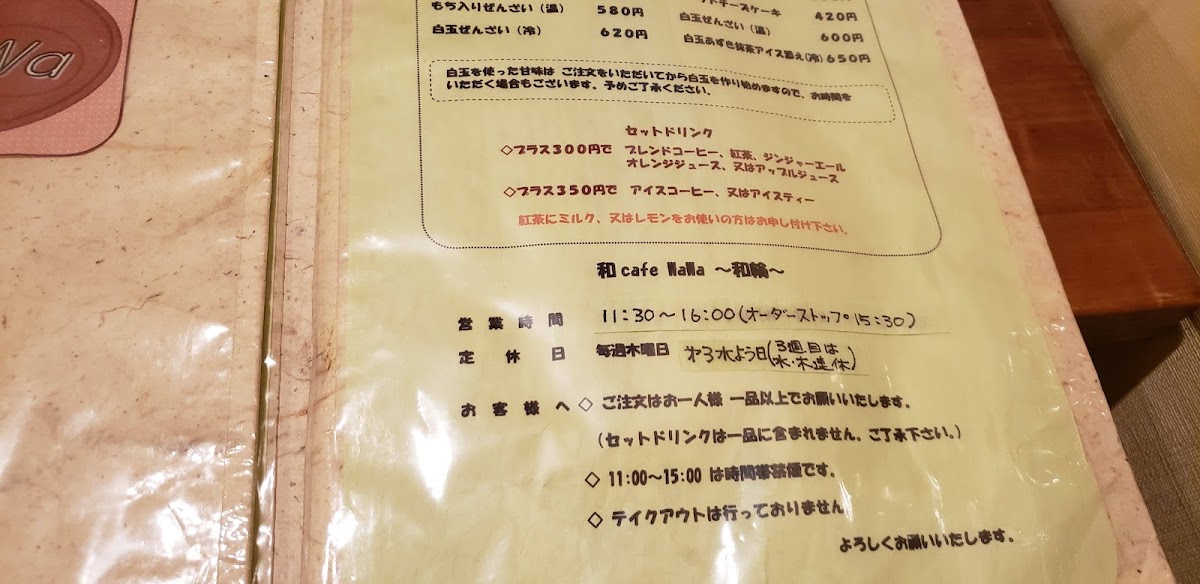 Wa
もち入りぜんざい（温） 580円
白玉ぜんざい（冷） 620円
チーズケーキ 420円
白玉ぜんざい（温） 600円
白玉あずき抹茶アイス添え(冷) 650円
白玉を使った甘味は ご注文をいただいてから白玉を作り始めますので、お時間を
いただく場合もございます。予めご了承ください。
セットドリンク
◇プラス300円で ブレンドコーヒー、紅茶、ジンジャーエール
オレンジジュース、又はアップルジュース
◇プラス350円で アイスコーヒー、又はアイスティー
紅茶にミルク、又はレモンをお使いの方はお申し付け下さい。
和cafe WaWa ～和輪～
営業時間 11:30～16:00(オーダーストップ15:30)
定休日 毎週木曜日 第3水よう日(3週目は
水・木連休)
お客様へ ◇ ご注文はお一人様 一品以上でお願いいたします。
(セットドリンクは一品に含まれません。ご了承下さい。)
◇ 11:00～15:00 は時間帯禁煙です。
◇ テイクアウトは行っておりません
よろしくお願いいたします。